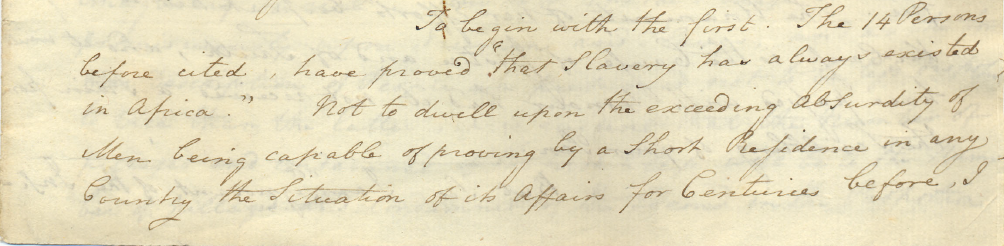 To begin with the first. The 14 Persons
before cited, have proved "that Slavery has always existed
in Africa." Not to dwell upon the exceeding Absurdity of
Men being capable of proving by a Short Residence in any
Country the Situation of its Affairs for Centuries before, I